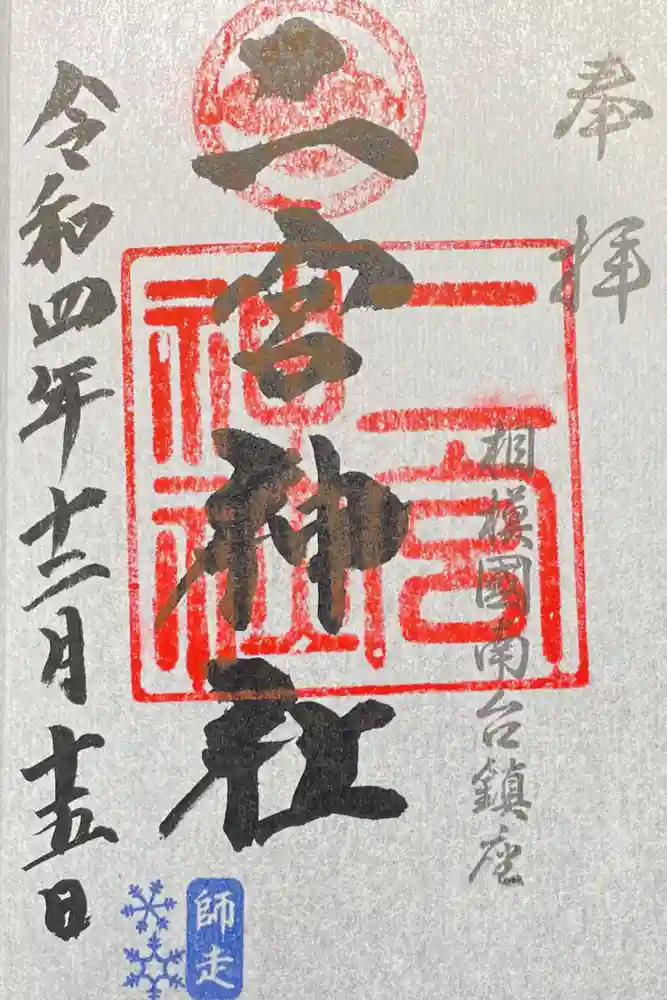 奉拝
相模國南台鎮座
二宮神社
二宮神社
令和四年十二月十五日
師走